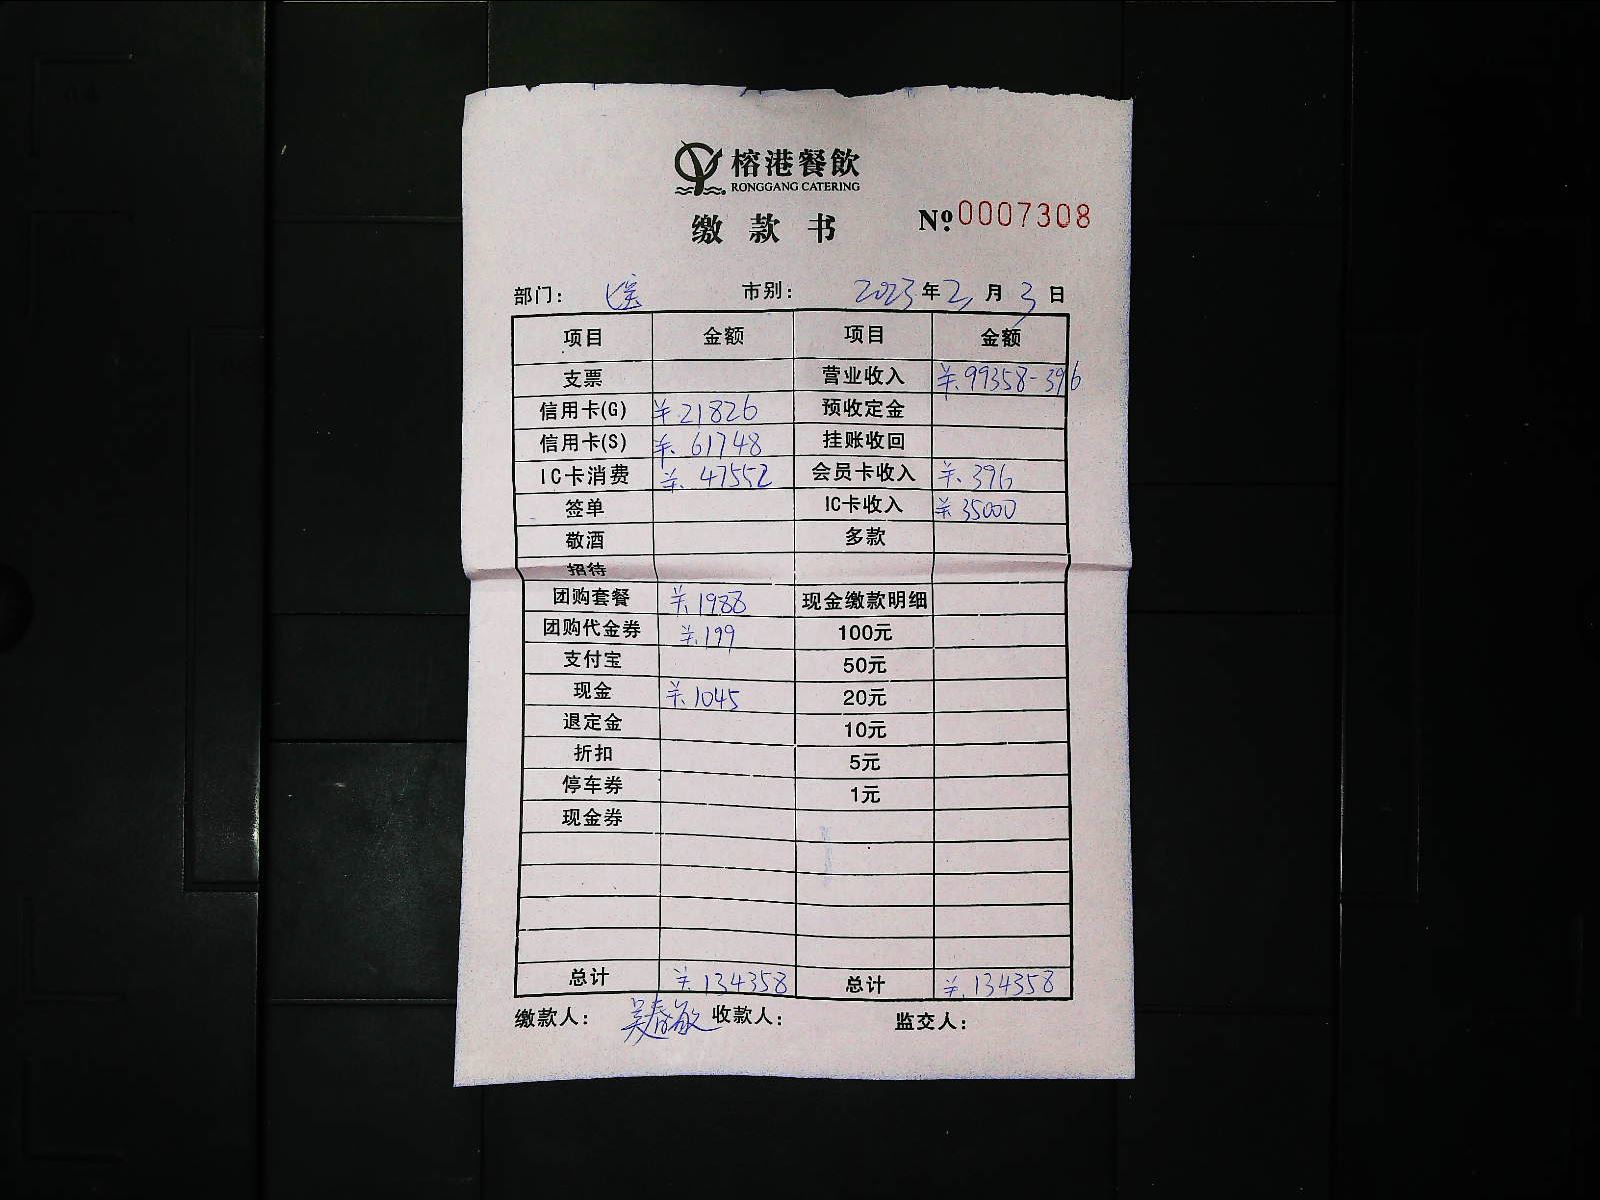 榕港餐飲
RONGGANG CATERING
缴款书 №0007308
部门： 市别： 2023年2月3日
项目 金额 项目 金额
支票 营业收入 ¥.99358-396
信用卡(G) ¥21826 预收定金
信用卡(S) ¥.61748 挂账收回
IC卡消费 ¥.47552 会员卡收入 ¥.396
签单 IC卡收入 ¥35000
敬酒 多款
招待
团购套餐 ¥.1988 现金缴款明细
团购代金券 ¥.199 100元
支付宝 50元
现金 ¥.1045 20元
退定金 10元
折扣 5元
停车券 1元
现金券
总计 ¥.134358 总计 ¥.134358
缴款人：吴春敏 收款人： 监交人：